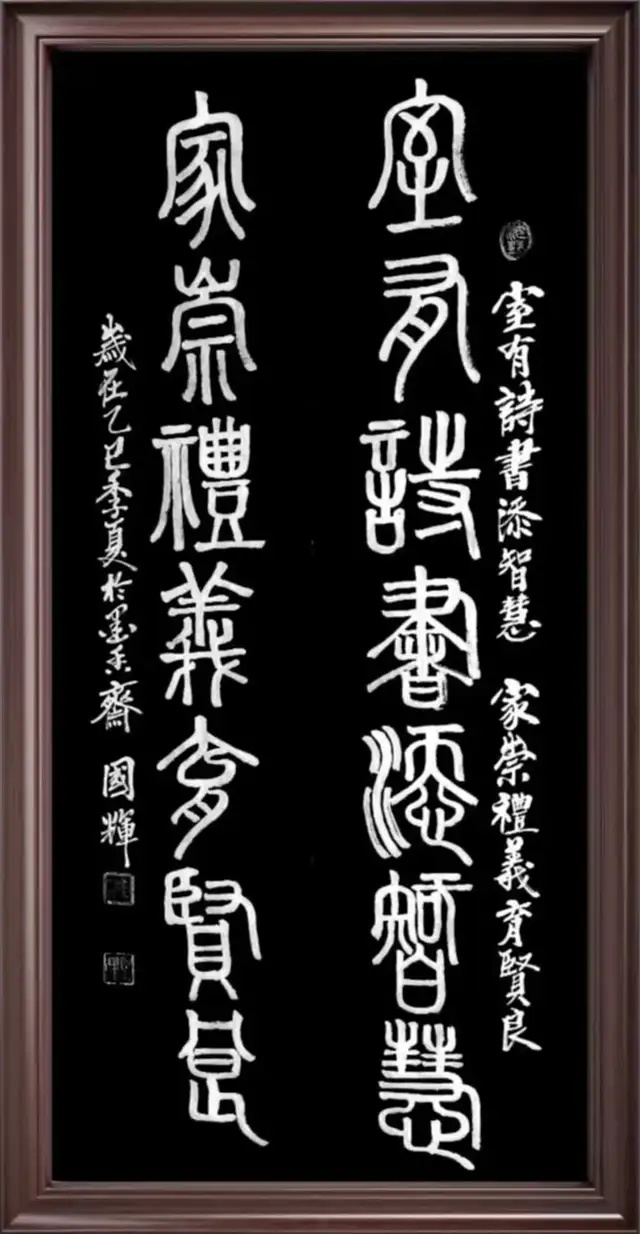 室有詩書添智慧 家崇禮義育賢良
室有詩書添智慧
家崇禮義育賢良
歲在乙巳季夏於墨香齋 國輝